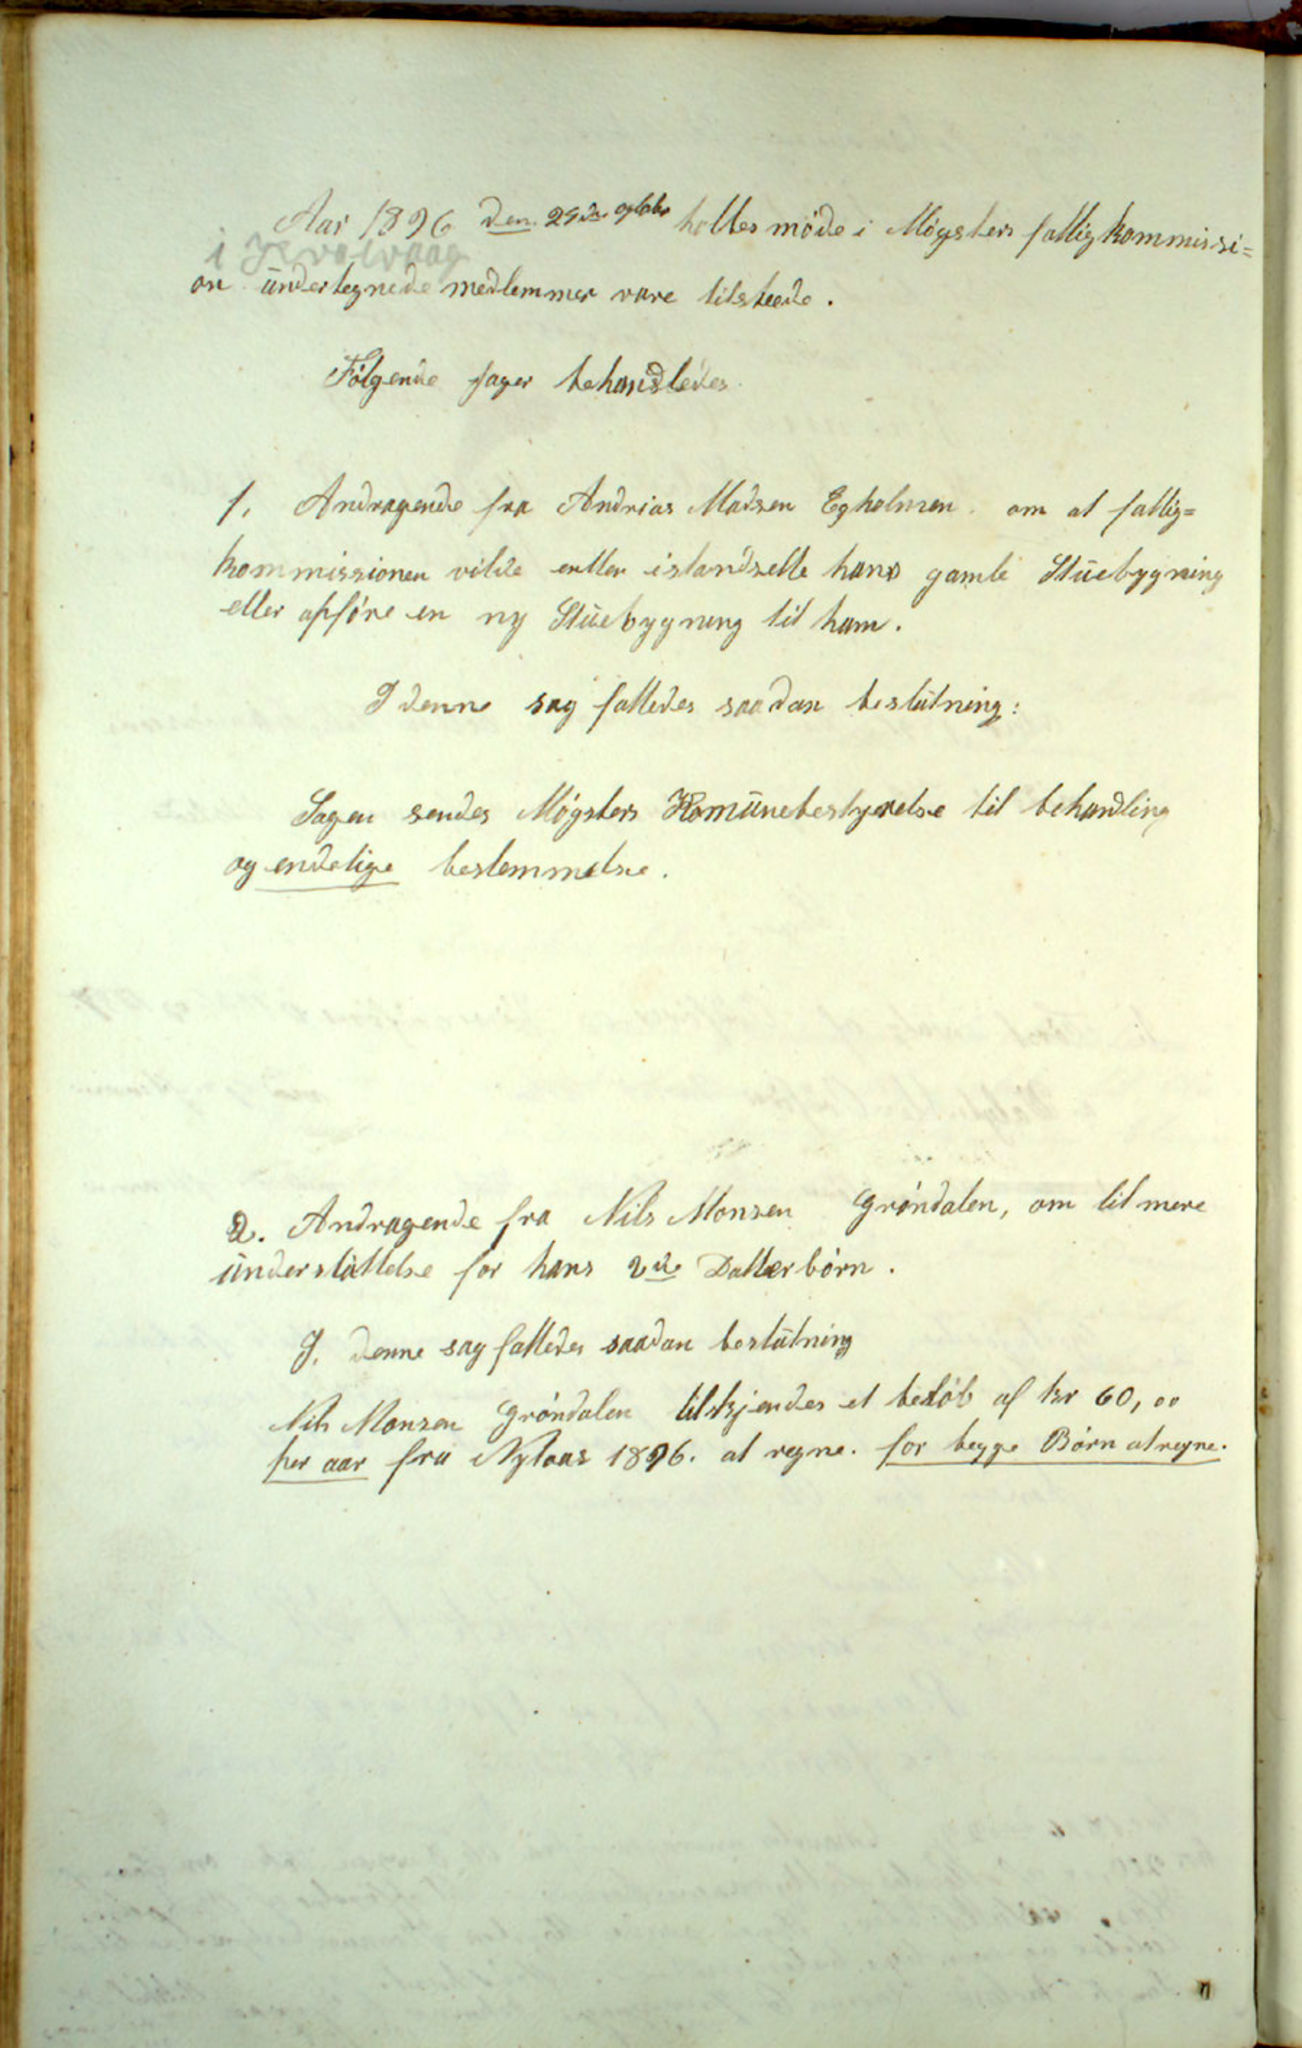 Aar 1896 den 29de oktober holtes möde i Møgsters fattigkommissi=
i Kvalvaag
on undertegnede medlemmer vare tilsteede.
Følgende sager behandledes
1. Andragende fra Andrias Madsen Egholmen om at fattig=
kommissionen vilde enten istandsette hans gamle Stuebygning
eller opføre en ny Stuebygning til ham.
I denne sag fattedes saadan beslutning:
Sagen sendes Møgsters Komunebestyrelse til behandling
og endelige bestemmelse.
2. Andragende fra Nils Monsen Grøndalen, om til mere
understøttelse for hans 2de Datterbørn.
I. denne sag fattedes saadan beslutning
Nils Monsen Grøndalen tilskjendes et beløb af kr 60,00
per aar fra Nytaar 1896. at regne. for begge Børn at regne.